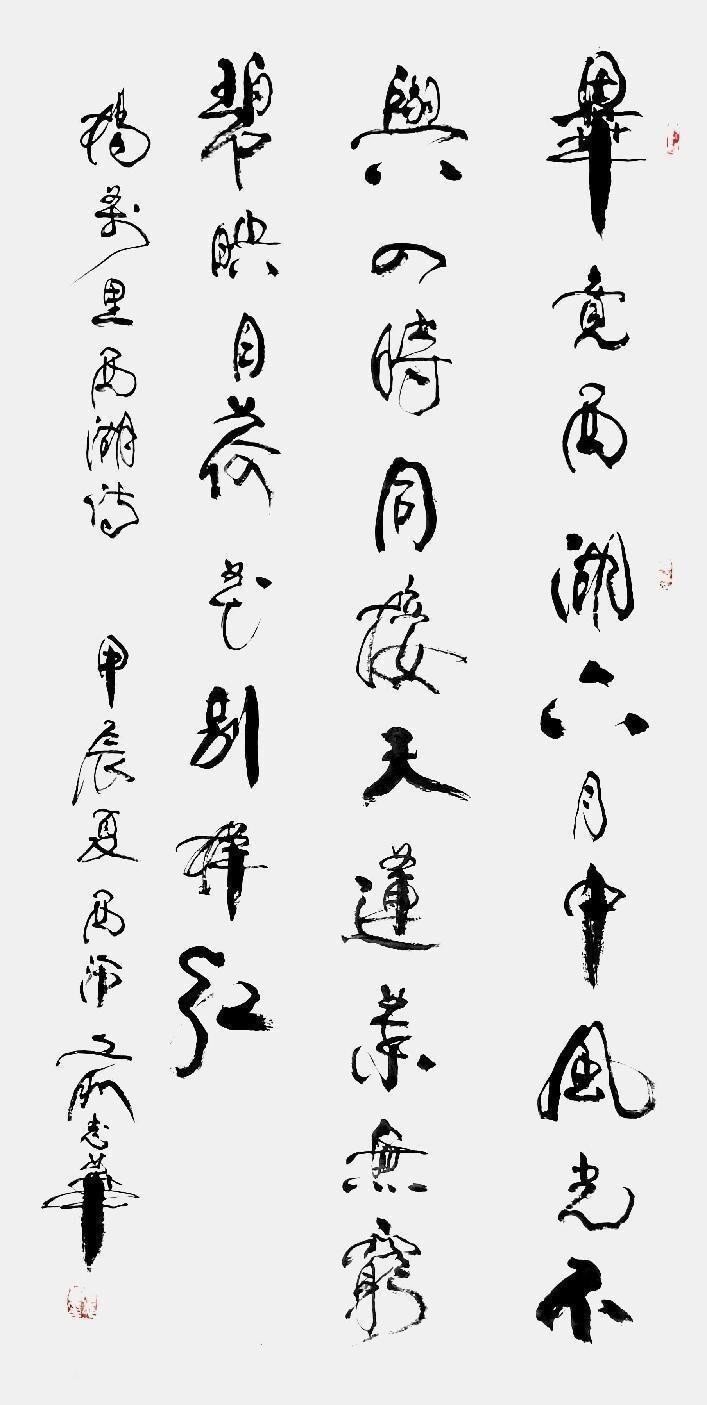 畢竟西湖六月中風光不
與四時同接天蓮葉無窮
碧映目荷花別樣紅
楊萬里西湖詩 甲辰夏西 志華